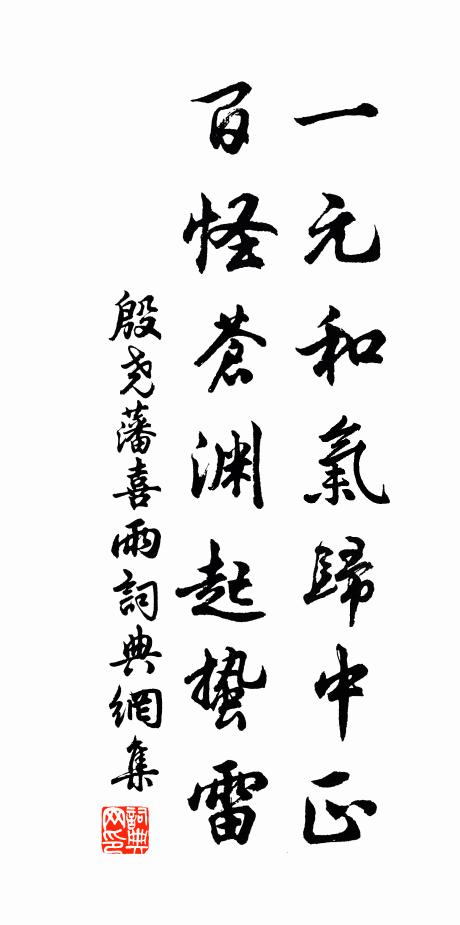 一元和氣歸中正
百怪蒼淵起蟄雷
殷尧藩喜雨詞典網集
詞典
网印